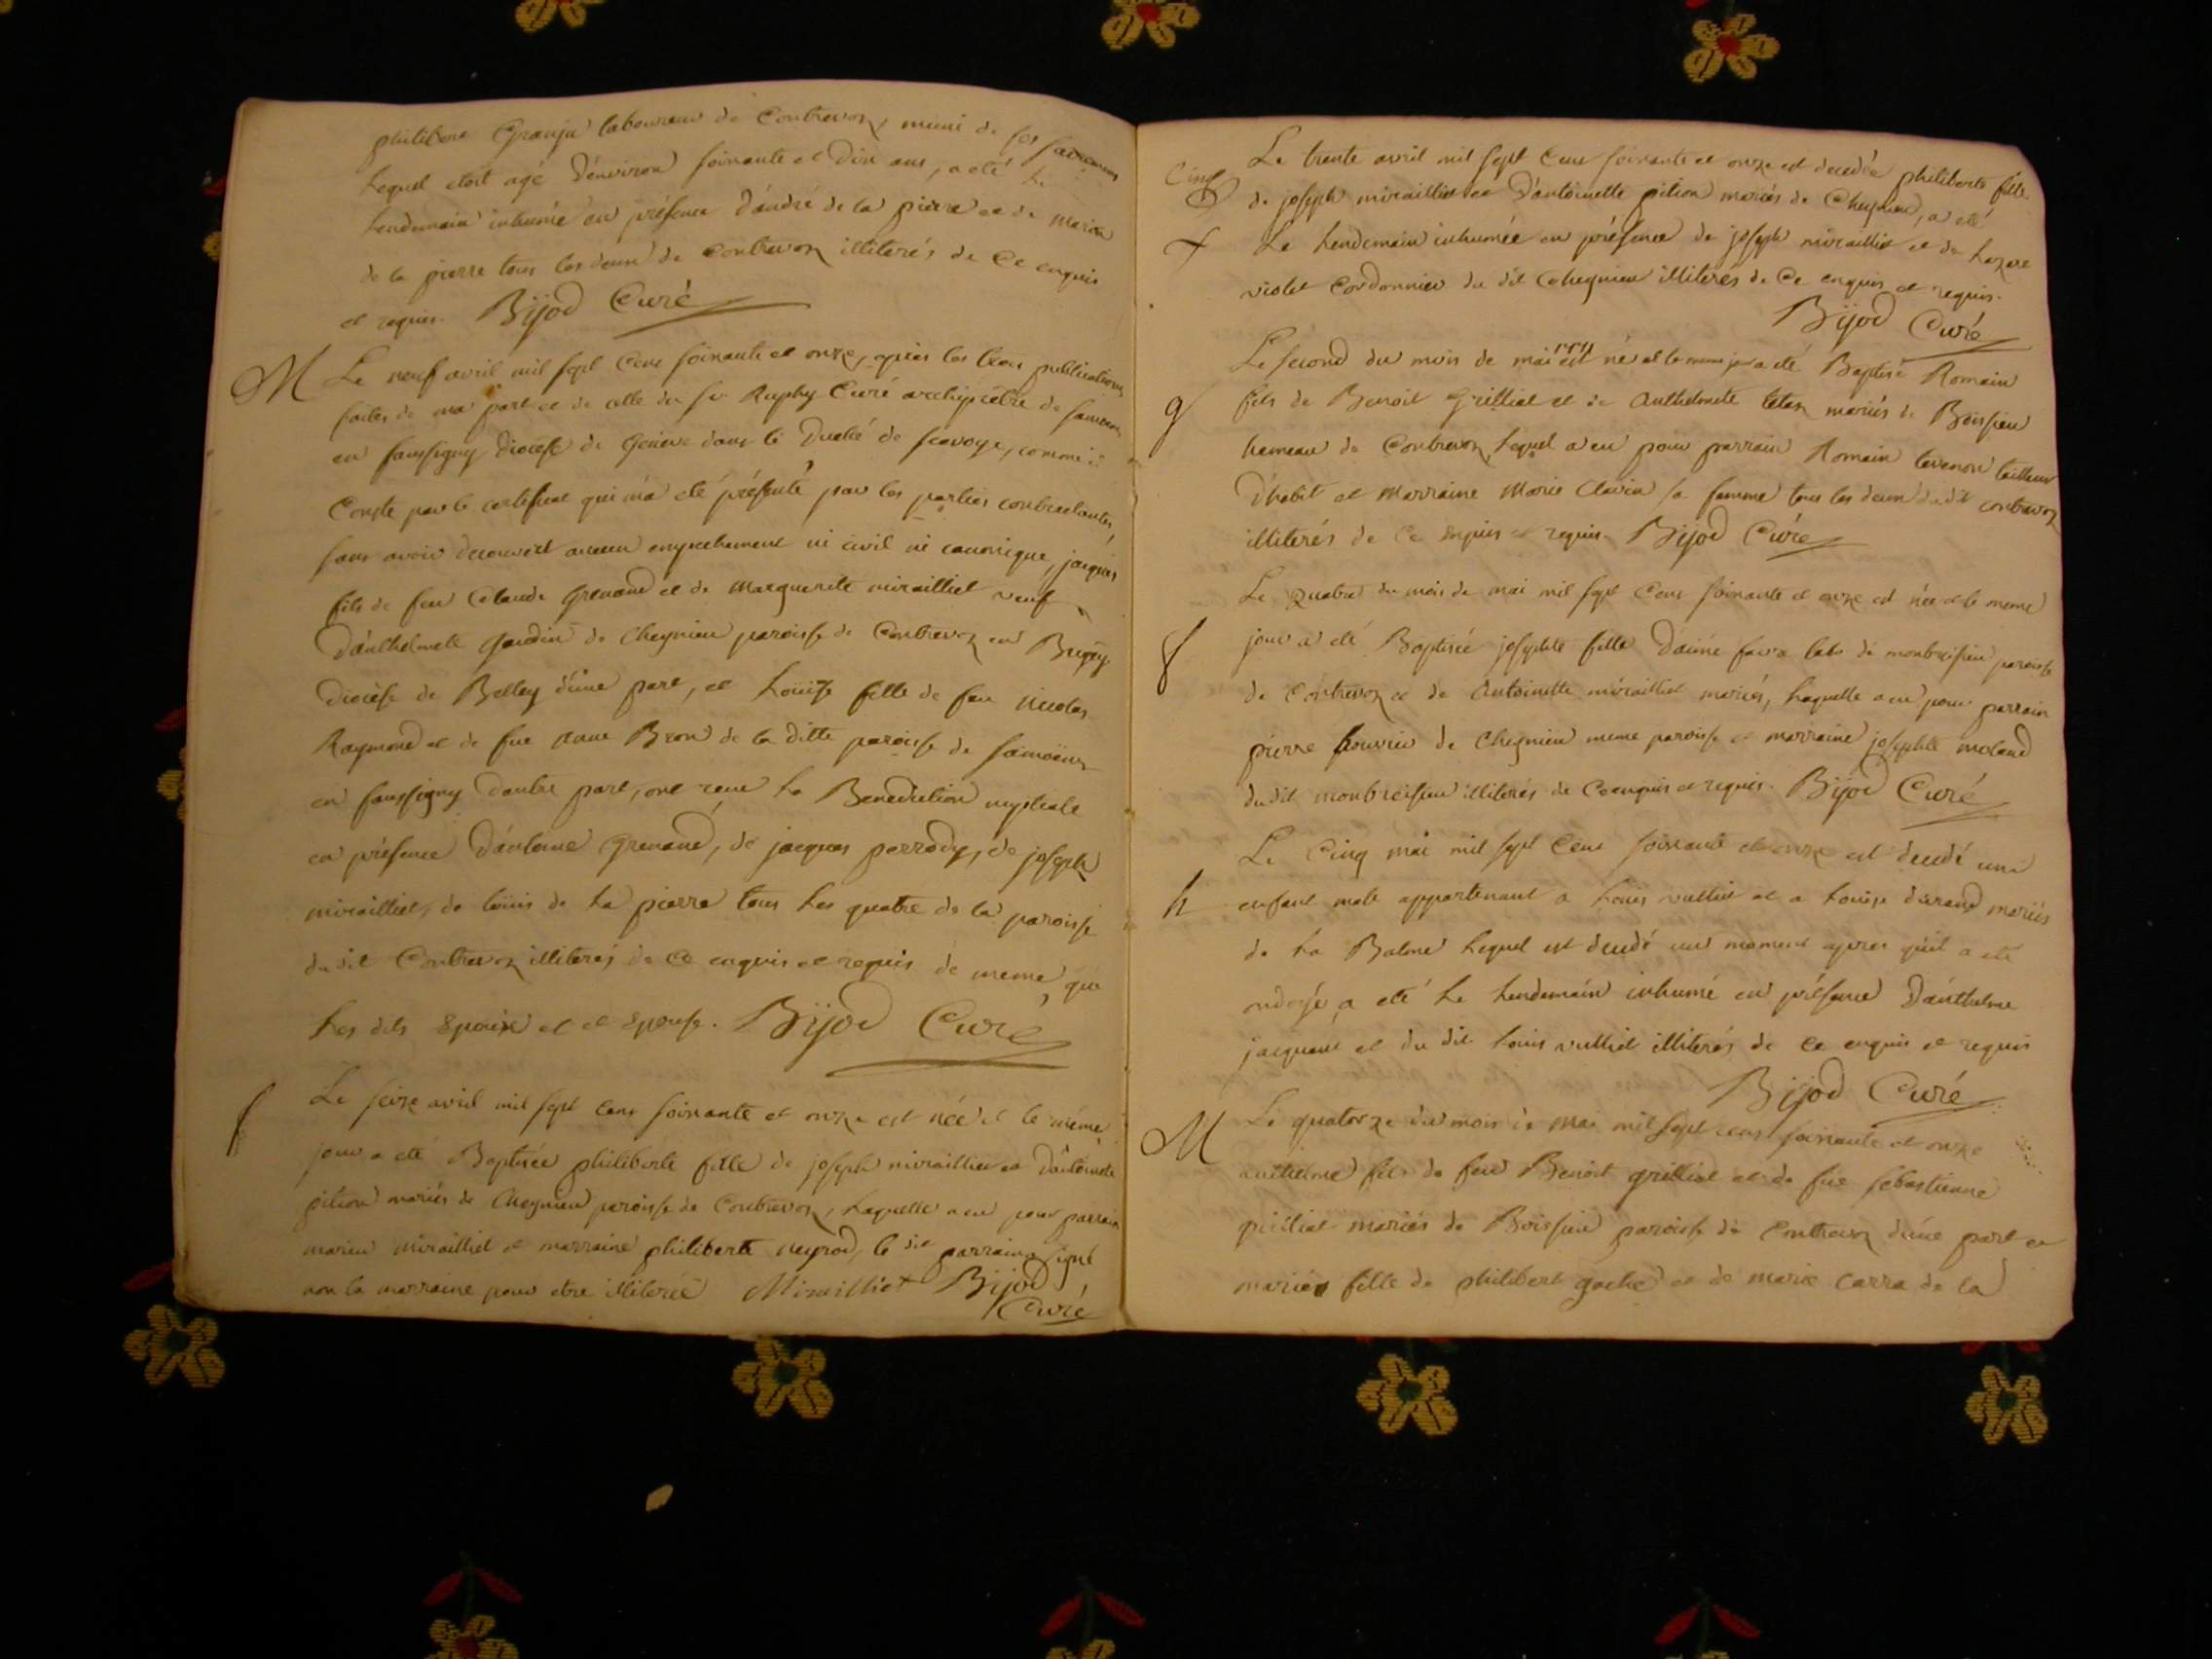 philibert Granju laboureur de Contrevoz, muni de ses sacremens
Lequel etoit agé d'environ soixante et dix ans, a eté le
Lendemain inhumé en présence d'andré de la pierre et de
de la pierre tous les deux de Contrevoz illiterés de Ce enquis
et requis. Bijod Curé
M Le neuf avril mil sept Cent soixante et onze, après les trois publications
faites de ma part et de celle du Sr Ruphy Curé archiprêtre de samoëns
en faussigny Diocèse de Genève dans le Duché de Savoye, comme il
Conste par le certificat qui m'a eté présenté par les parties contractantes,
sans avoir decouvert aucun empechement ni civil ni canonique, jacques
fils de feu Claude Grenand et de Marguerite miraillet veuf
D'anthelmette Gardin de Cheynieu paroisse de Contrevoz en Bugey
Diocèse de Belley d'une part, et Loüise fille de feu Nicolas
Raymond et de fue anne Bron de la ditte paroisse de samoëns
en faussigny d'autre part, ont reçu la Benediction nuptiale
en présence d'antoine Grenand, de jacques perrody, de joseph
miraillet, de loüis de La pierre tous Les quatre de la paroisse
du dit Contrevoz illiterés de Ce enquis et requis de meme que
Les dits Epoux et et Epouse. Bijod Curé
f Le seize avril mil sept cent soixante et onze est née et le même
jour a eté Baptisée philiberte fille de joseph miraillet et d'antoinette
pition mariés de Cheynieu paroisse de Contrevoz, Laquelle a eu pour parrain
marin miraillet et marraine philiberte neyrod, le dit parrain a signé
non la marraine pour etre illiterée Miraillet Bijod
Curé
Le trente avril mil sept Cent soixante et onze est decedée philiberte fille
Cinq
de joseph miraillet et d'antoinette pition mariés de Cheynieu, a eté
Le Lendemain inhumée en présence de joseph miraillet et de Lazare
violet Cordonnier du dit Cheynieu illiterés de Ce enquis et requis.
Bijod Curé
Le second du mois de mai 1771 est né et le meme jour a eté Baptisé Romain
g fils de Benoit Grilliet et de Anthelmette tetaz mariés de Boissieu
hameau de Contrevoz, Lequel a eu pour parrain Romain tevenon tailleur
D'habit et Marraine Marie Clavin sa femme tous les deux du dit contrevoz
illiterés de Ce enquis et requis. Bijod Curé
Le Quatre du mois de mai mil sept Cent soixante et onze est née et le meme
f jour a eté Baptisée josephte fille d'aimé favre labr de montbreisieu paroisse
de Contrevoz et de Antoinette miraillet mariés, Laquelle a eu pour parrain
pierre de Cheynieu meme paroisse et marraine josephte moland
du dit montbreisieu illiterés de Ce enquis et requis. Bijod Curé
Le Cinq mai mil sept Cent soixante et onze est decedé un
h enfant male appartenant a Loüis vulliet et a Loüise durand mariés
de La Balme Lequel est decedé un moment apres qu'il a eté
ondoyé, a eté Le Lendemain inhumé en présence d'anthelme
jacquent et du dit Loüis vulliet illiterés de Ce enquis et requis
Bijod Curé
M Le quatorze du mois de Mai mil sept cent soixante et onze
anthelme fils de feu Benoit grilliet et de fue sebastienne
mariés de Boissieu paroisse de Contrevoz d'une part et
marie fille de philibert gache et de marie carra de la